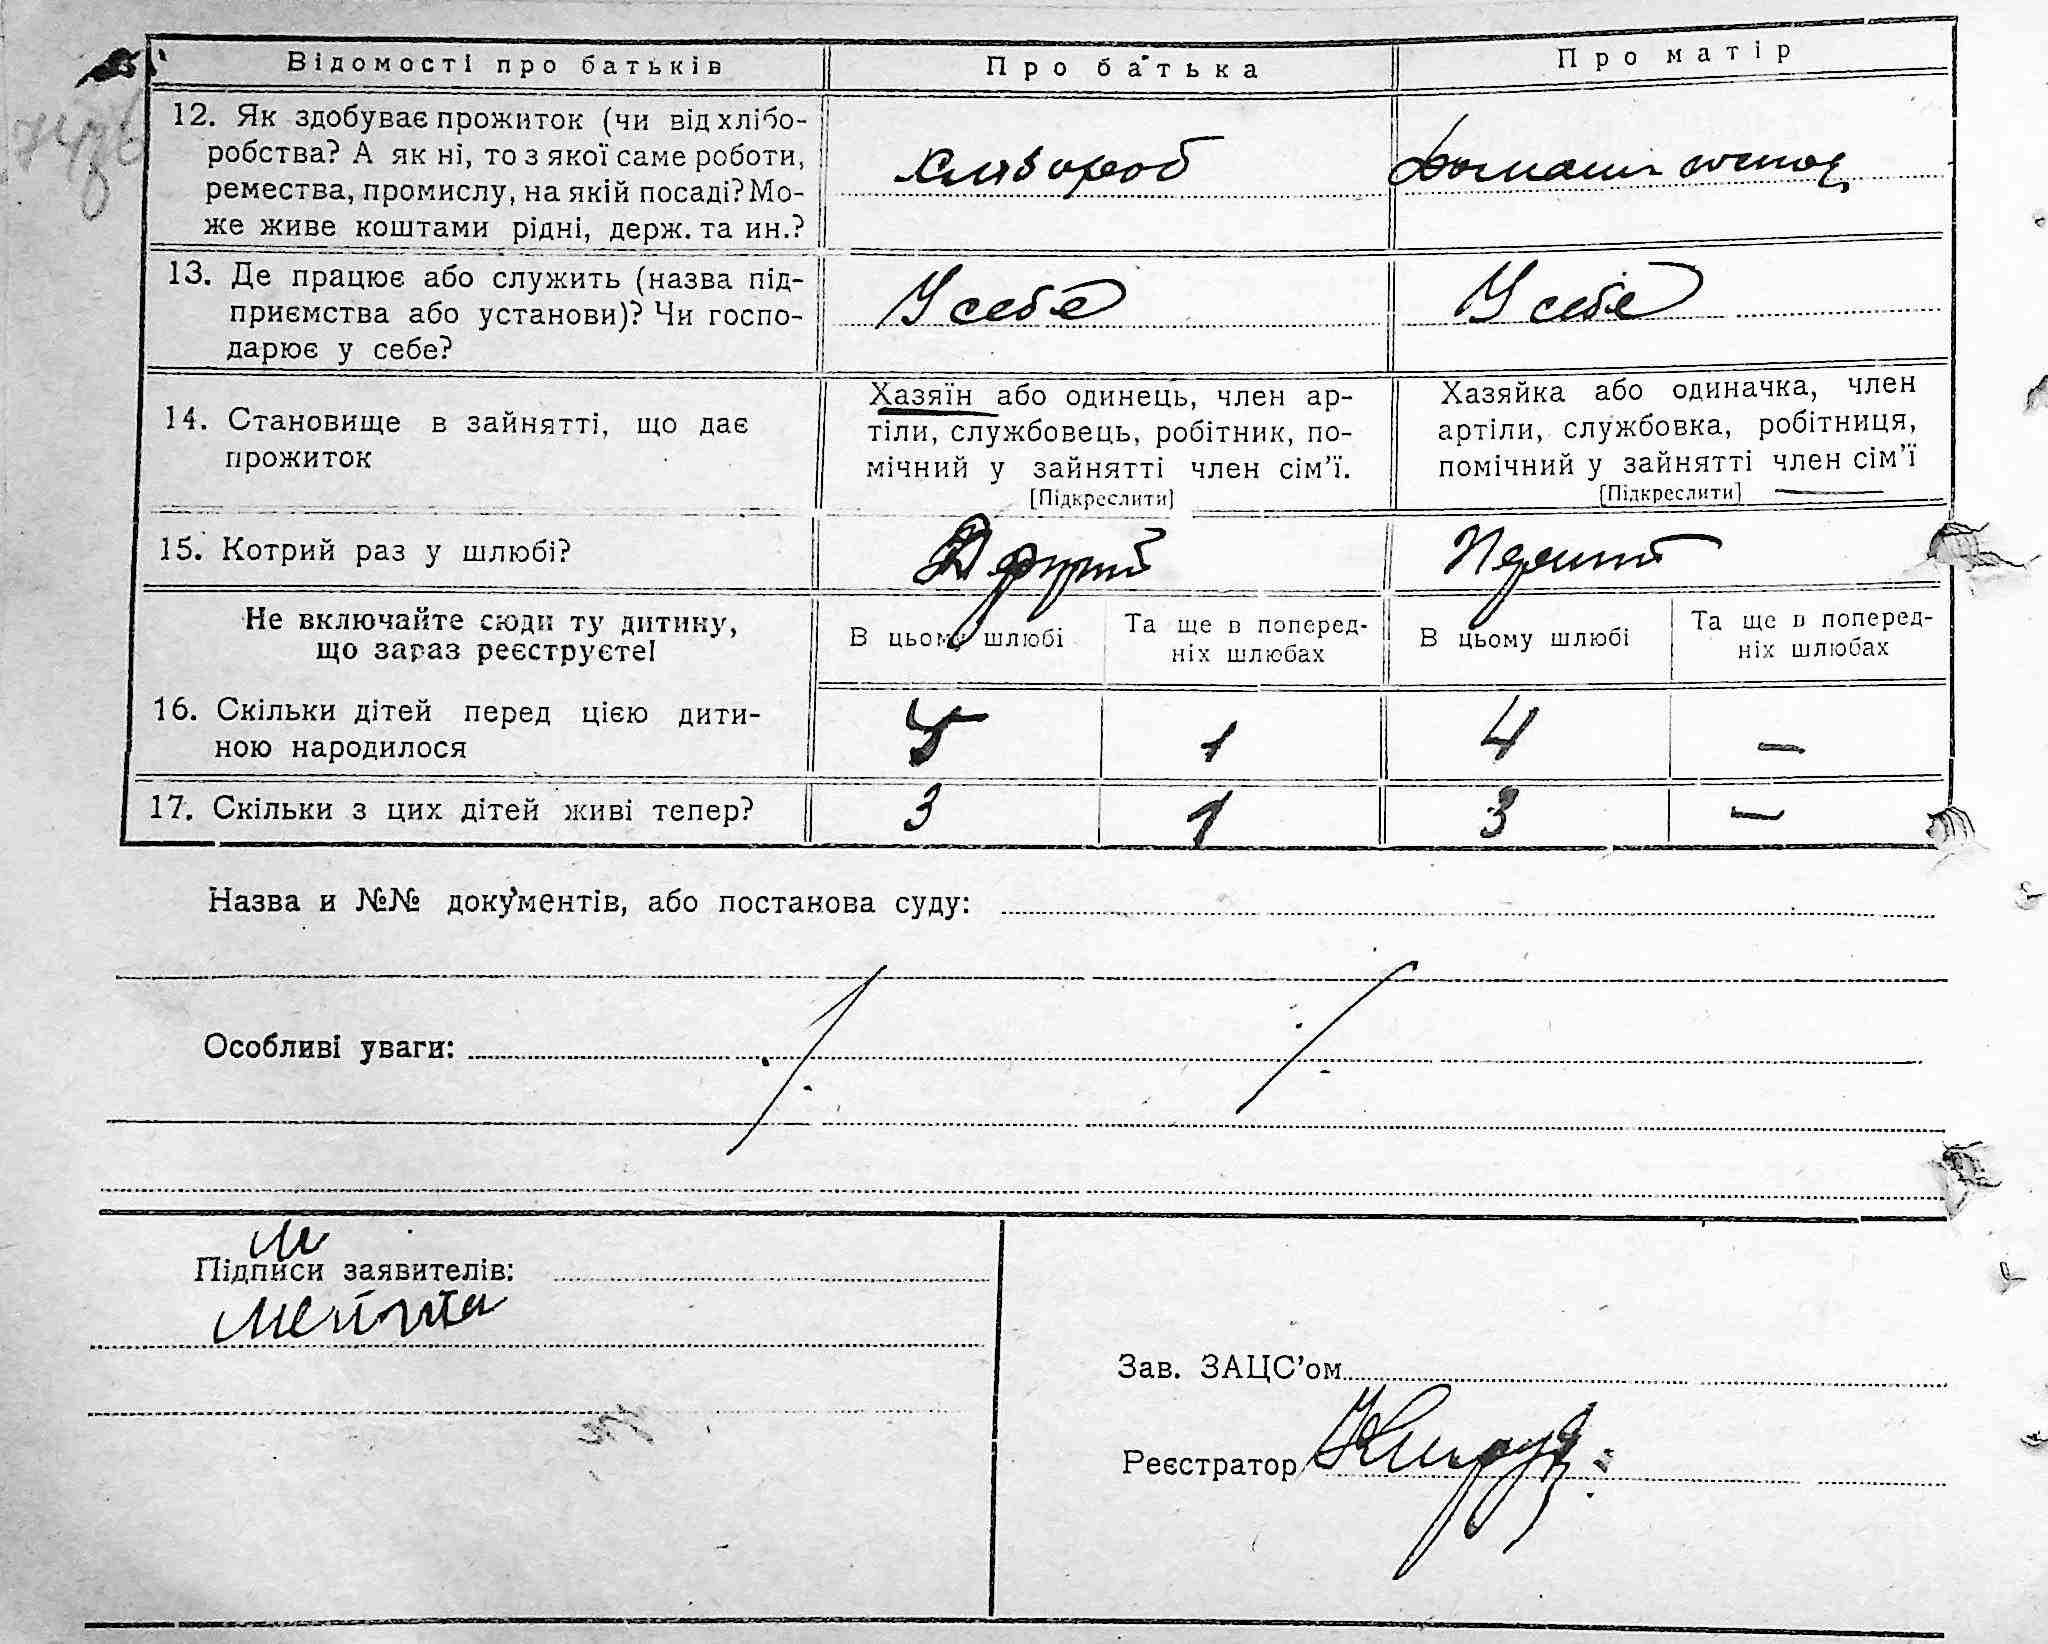 Відомості про батьків Про батька Про матір
12. Як здобуває прожиток (чи від хлібо-
робства? А як ні, то з якої саме роботи,
ремества, промислу, на якій посаді? Мо-
же живе коштами рідні, держ. та ин.?
хлібороб
13. Де працює або служить (назва під-
приємства або установи)? Чи госпо-
дарює у себе?
У себе У себе
14. Становище в зайнятті, що дає
прожиток
Хазяїн або одинець, член ар-
тіли, службовець, робітник, по-
мічний у зайнятті член сім'ї.
[Підкреслити]
Хазяйка або одиначка, член
артіли, службовка, робітниця,
помічний у зайнятті член сім'ї
[Підкреслити]
15. Котрий раз у шлюбі? Другий Перший
Не включайте сюди ту дитину,
що зараз реєструєте!
В цьому шлюбі
Та ще в поперед-
ніх шлюбах
В цьому шлюбі
Та ще в поперед-
ніх шлюбах
16. Скільки дітей перед цією дити-
ною народилося
1 4 —
17. Скільки з цих дітей живі тепер? 3 1 3 —
Назва и №№ документів, або постанова суду:
Особливі уваги:
Підписи заявителів:
Зав. ЗАЦС'ом
Реєстратор